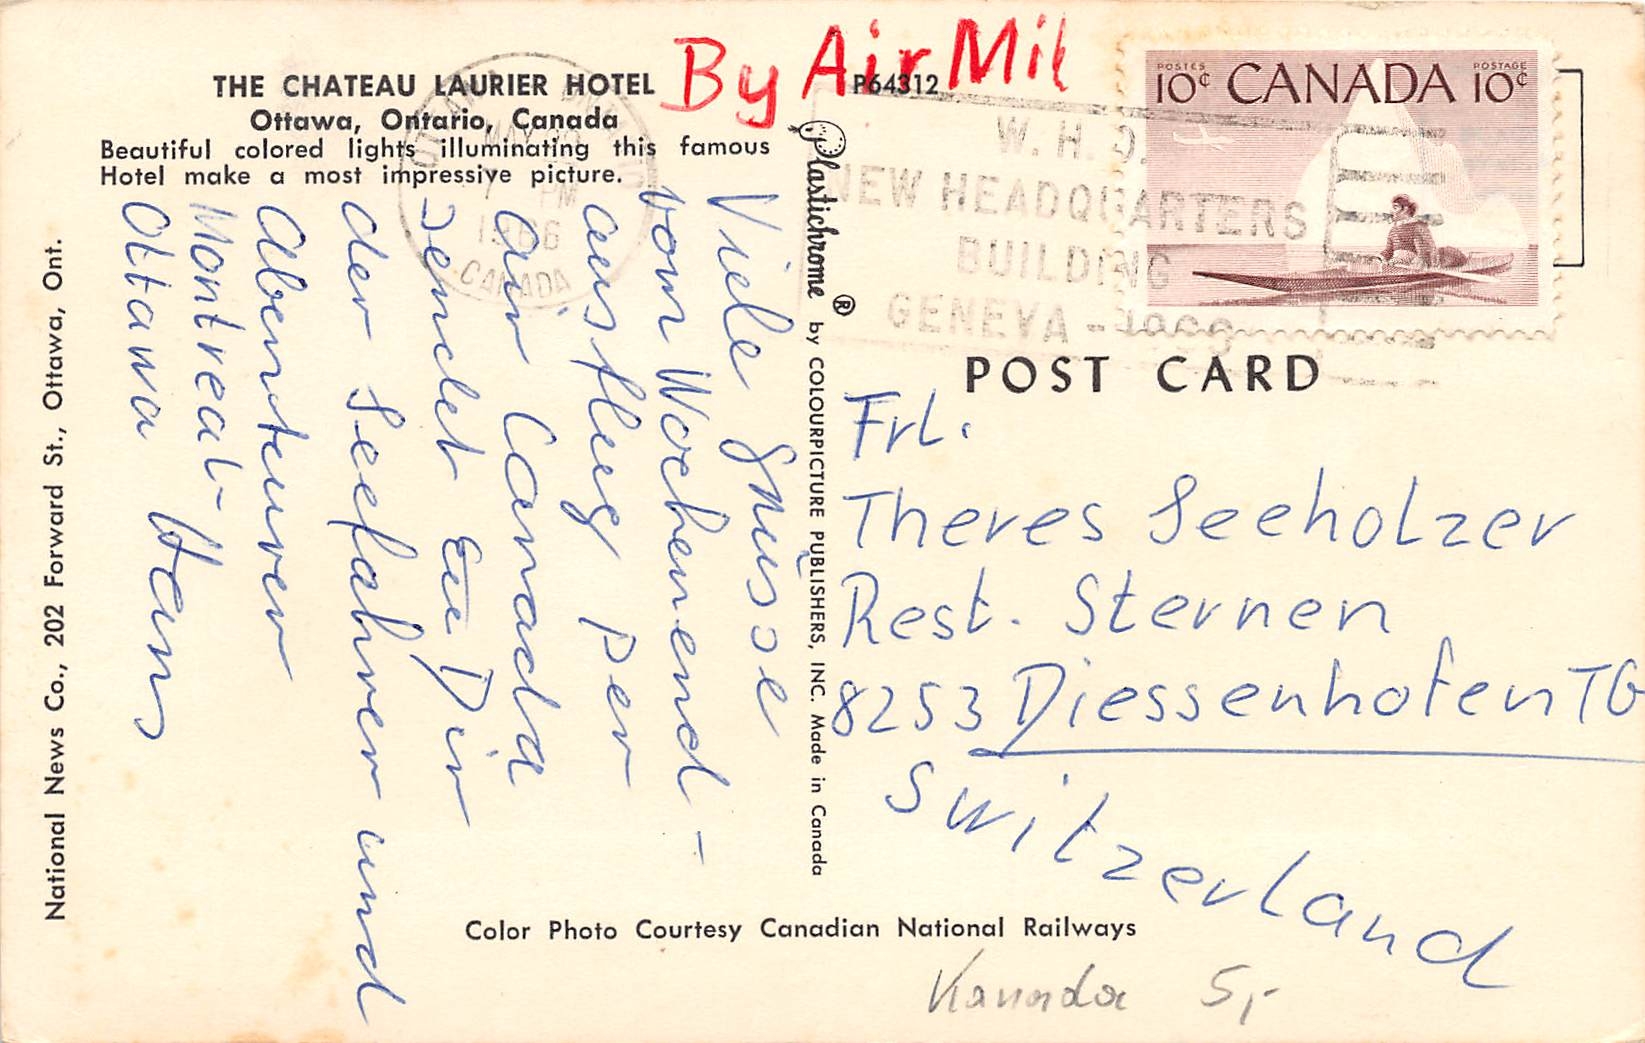 THE CHATEAU LAURIER HOTEL
Ottawa, Ontario, Canada
Beautiful colored lights illuminating this famous
Hotel make a most impressive picture.
By Air Mil
P64312
POSTES POSTAGE
10¢ CANADA 10¢
OTTAWA
MAY
PM
1966
CANADA
W. H. O.
NEW HEADQUARTERS
BUILDING
GENEVA - 1966
Viele Grüsse
vom Wochenend-
ausflug per
Car Canada
sendet Dir
der Seefahrer und
Abenteurer
Montreal-
Ottawa Hans
National News Co., 202 Forward St., Ottawa, Ont.
Plastichrome ® by COLOURPICTURE PUBLISHERS, INC. Made in Canada
POST CARD
Frl.
Theres Seeholzer
Rest. Sternen
8253 Diessenhofen TG
Switzerland
Color Photo Courtesy Canadian National Railways
Kanada 5,-